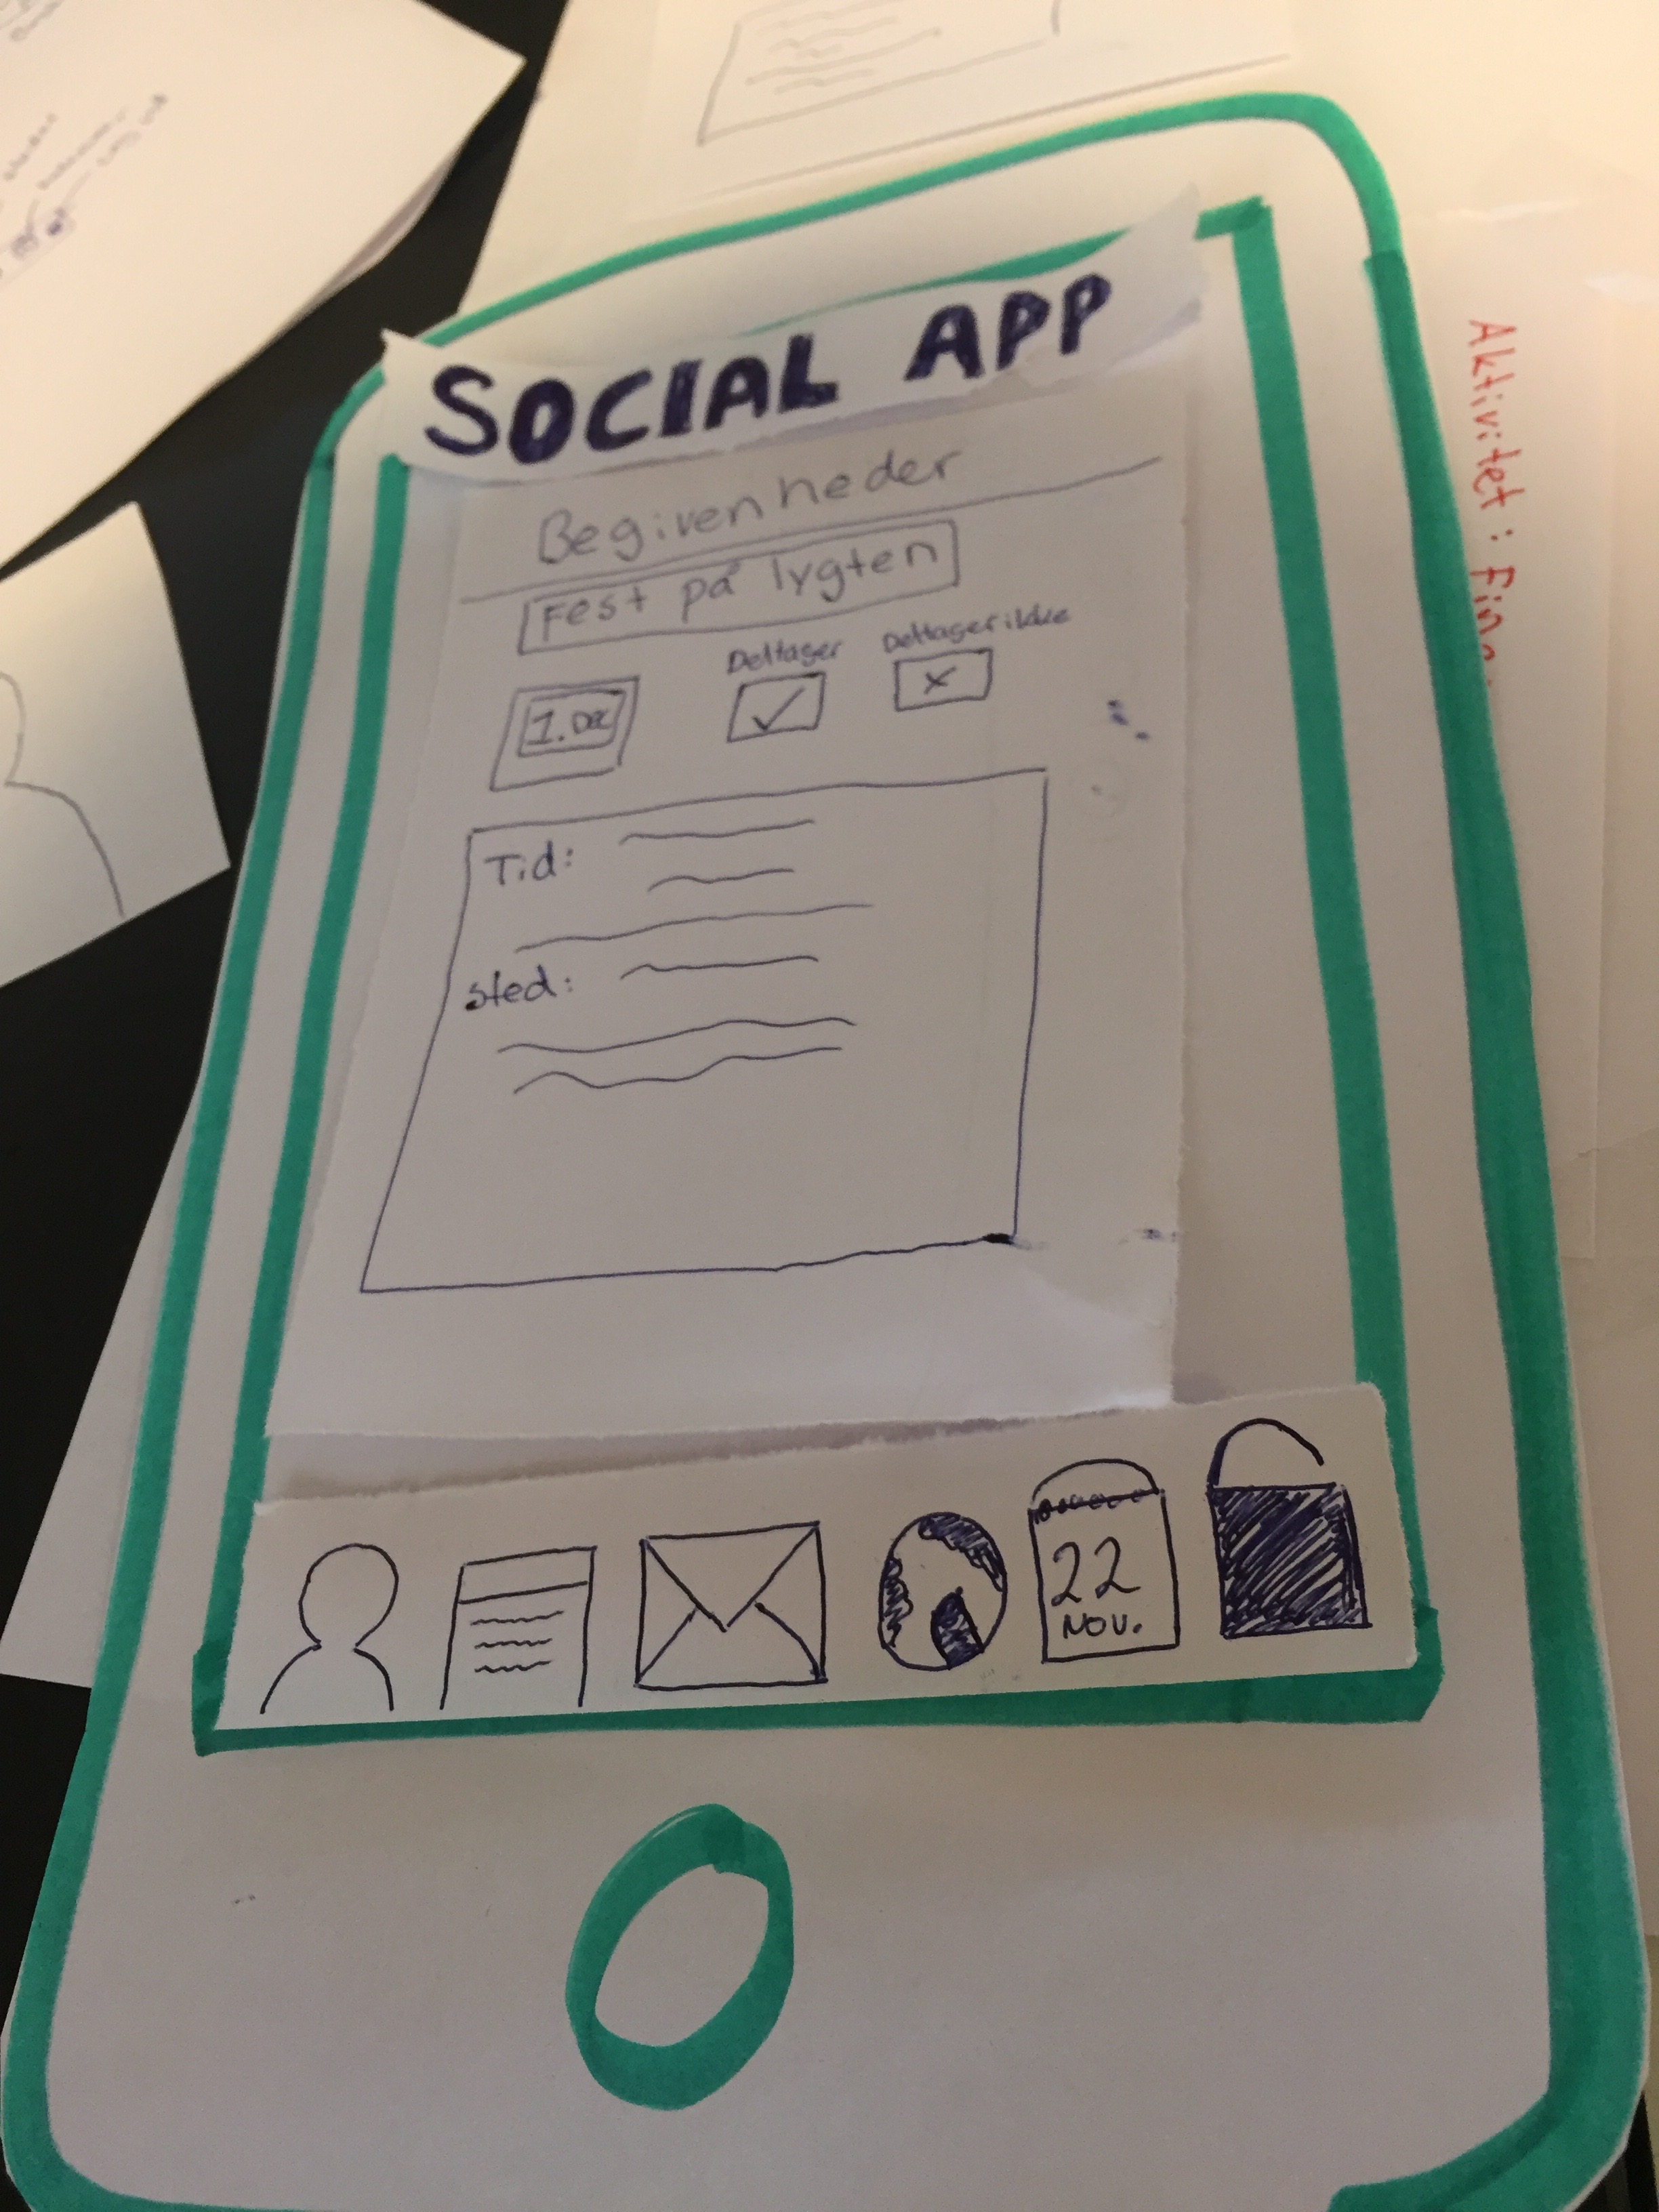 SOCIAL APP
Begivenheder
Fest på lygten
Deltager Deltager ikke
1. Dec
Tid:
sted:
22
NOV.
Aktivitet: